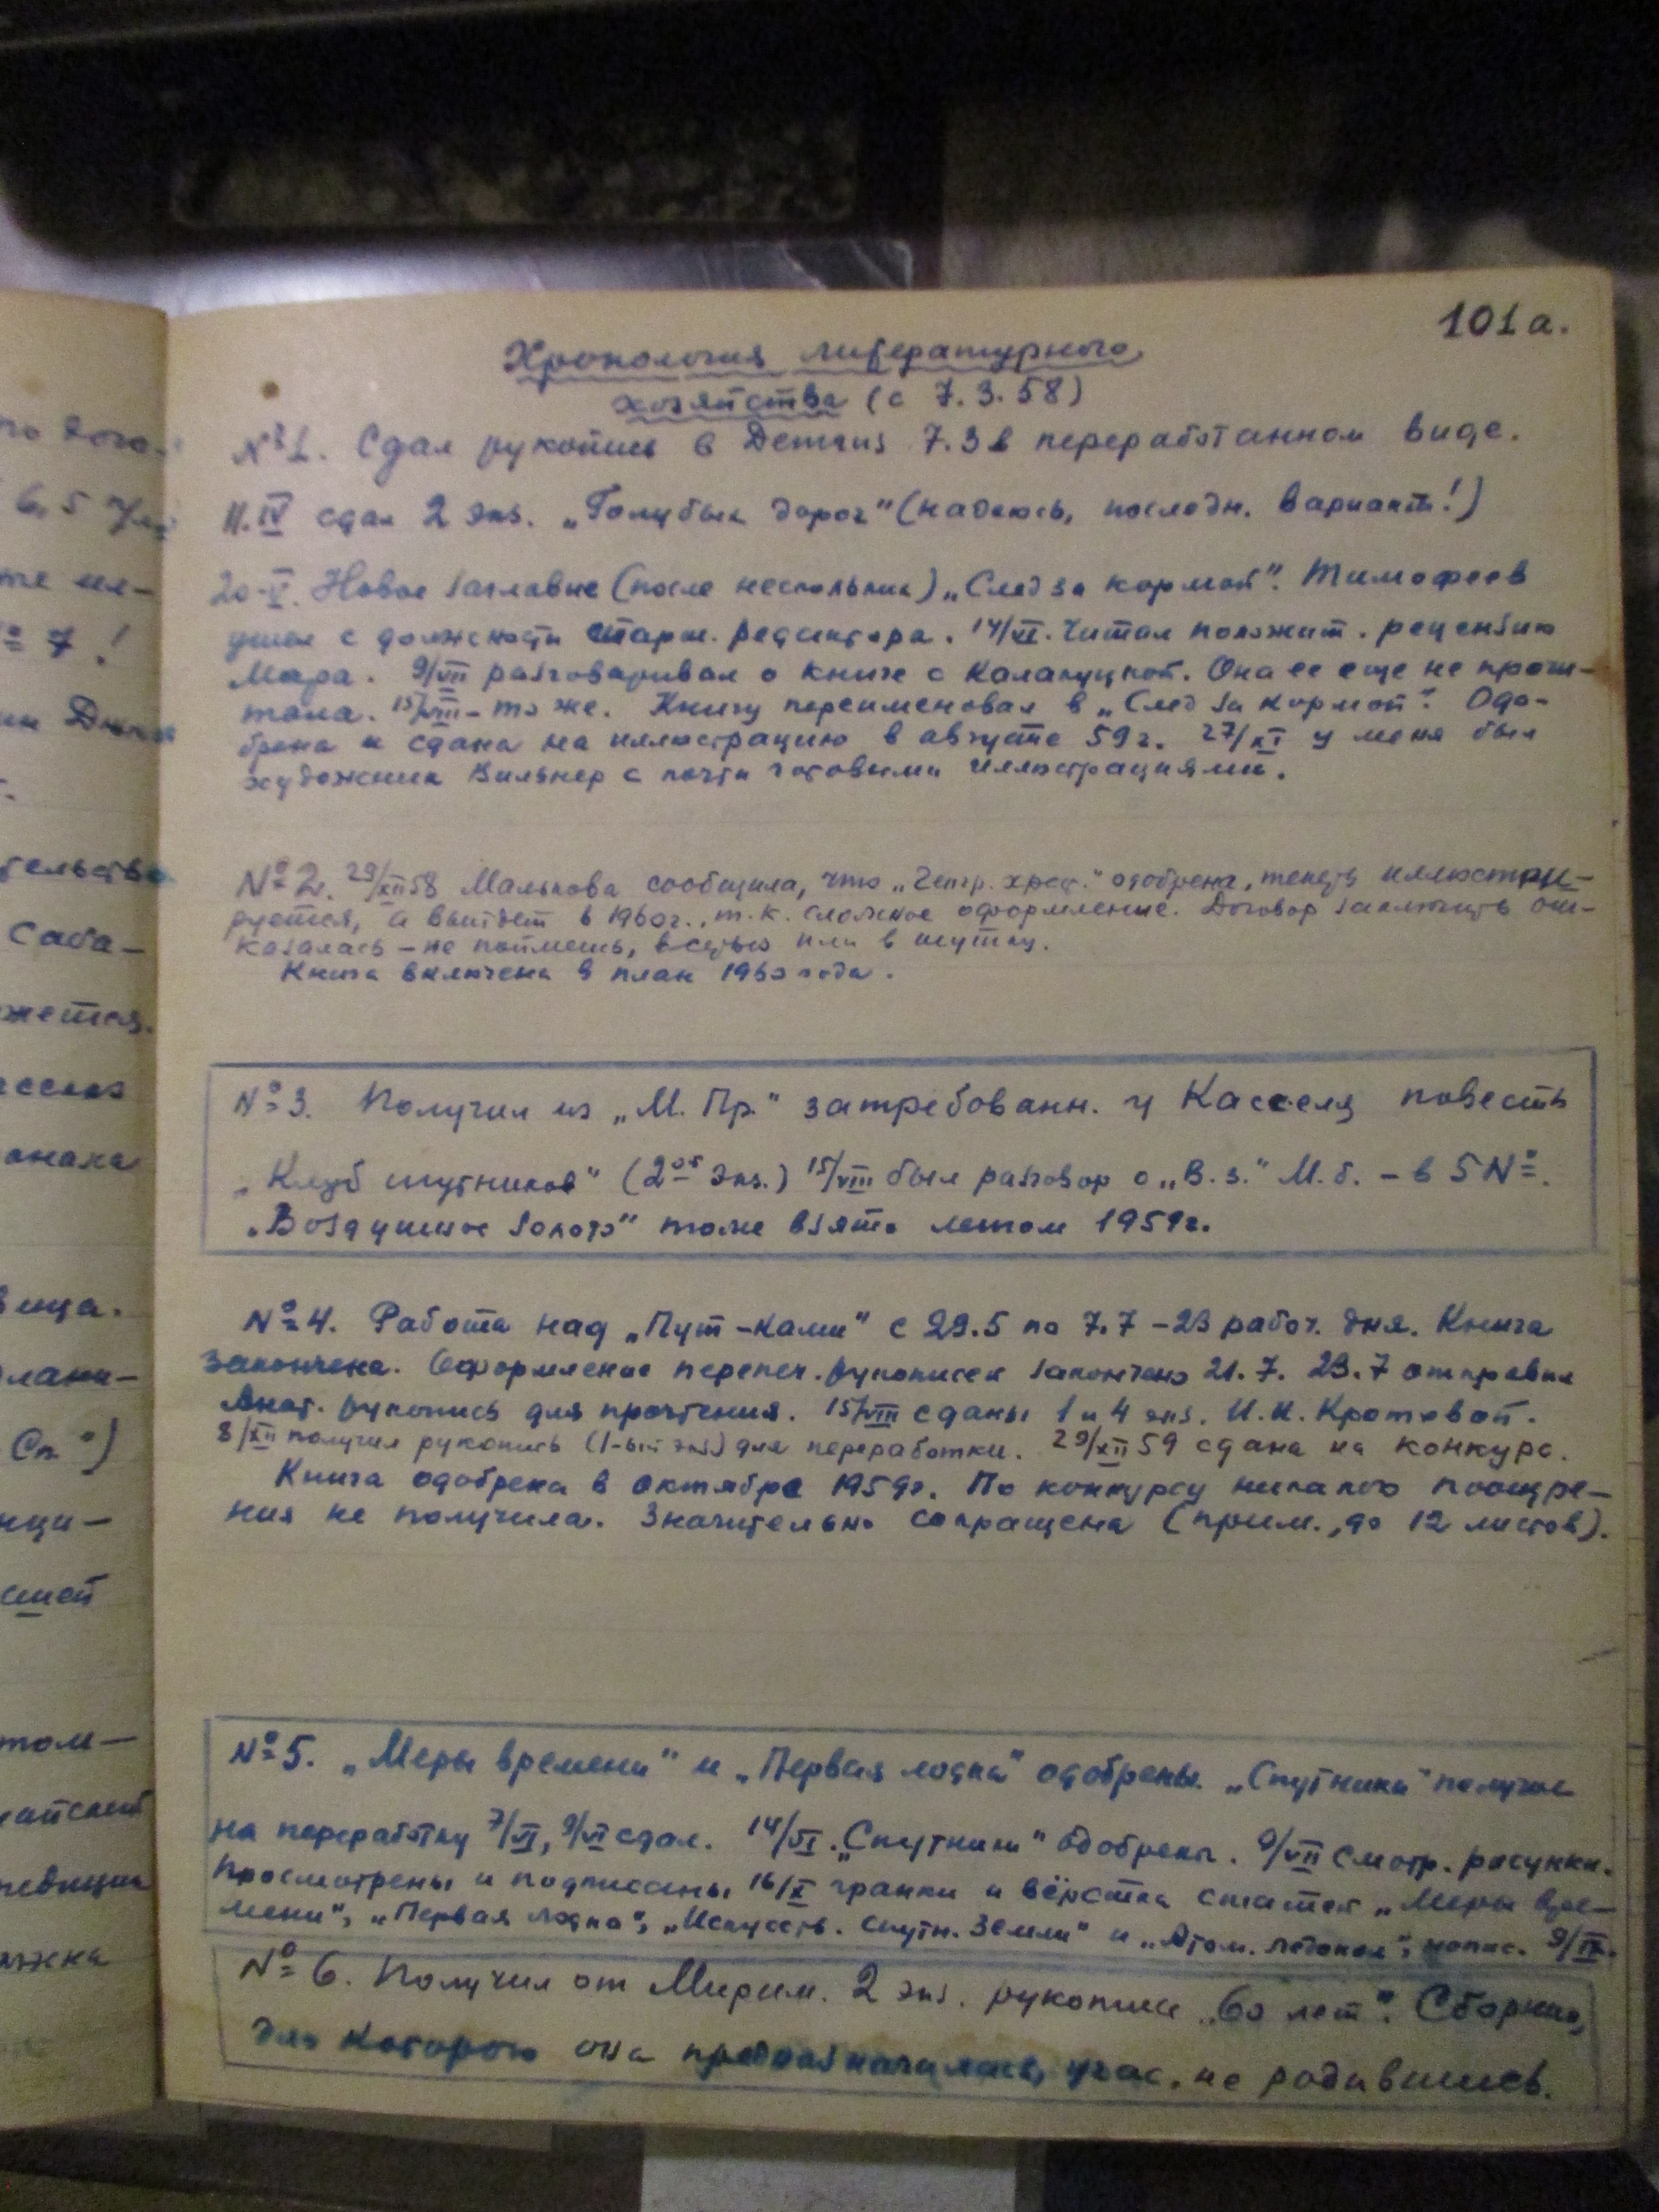 101а.
Хронология литературного
хозяйства (с 7.3.58)
№1. Сдал рукопись в Детгиз 7.3 в переработанном виде.
11.IV сдал 2 экз. „Голубых дорог" (надеюсь, последн. вариант!)
20.V. Новое заглавие (после нескольких) „След за кормой". Тимофеев
ушел с должности старш. редактора. 14/VI. Читал положит. рецензию
Мара. 9/VII разговаривал о книге с Калакуцкой. Она ее еще не прочи-
тала. 15/VIII – то же. Книгу переименовал в „След за кормой". Одо-
брена и сдана на иллюстрацию в августе 59 г. 27/XI у меня был
художник Вильнер с почти готовыми иллюстрациями.
№2. 29/XII 58 Малькова сообщила, что „ одобрена, теперь иллюстри-
руется, а выйдет в 1960 г., т.к. сложное оформление. Договор заключить от-
казалась – не поймешь, всерьез или в шутку.
Книга включена в план 1960 года.
№3. Получил из „М. Пр." затребованн. у Касселя повесть
„Клуб спутников" (2ой экз.) 15/VIII был разговор о „В.з." М.б. – в 5 №.
„Воздушное золото" тоже взято летом 1959 г.
№4. Работа над „Пут-ками" с 29.5 по 7.7 – 23 рабоч. дня. Книга
закончена. Оформление перепеч. рукописей закончено 21.7. 23.7 отправил
Анат. рукопись для прочтения. 15/VIII сданы 1 и 4 экз. И.И. Кротовой.
8/XII получил рукопись (1-ый экз.) для переработки. 29/XII 59 сдана на конкурс.
Книга одобрена в октябре 1959 г. По конкурсу никакого поощре-
ния не получила. Значительно сокращена (прим., до 12 листов).
№5. „Меры времени" и „Первая лодка" одобрены. „Спутники" получил
на переработку 7/VI, 9/VI сдал. 14/VI. „Спутники" одобрены. 9/VII Смотр. рисунки.
Просмотрены и подписаны 16/X гранки и вёрстка статей „Меры вре-
мени", „Первая лодка", „Искусств. спутн. Земли" и „Атом. ледокол", напис. 9/IX.
№6. Получил от Мирим. 2 экз. рукописи „60 лет". Сборник,
для которого она предназначалась, угас, не родившись.